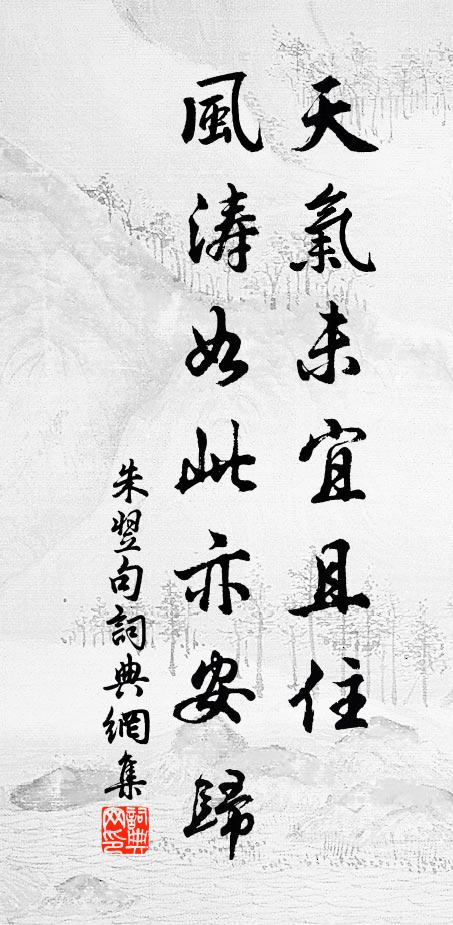 天氣未宜且住
風濤如此亦安歸
朱翌句詞典網集
詞典网印